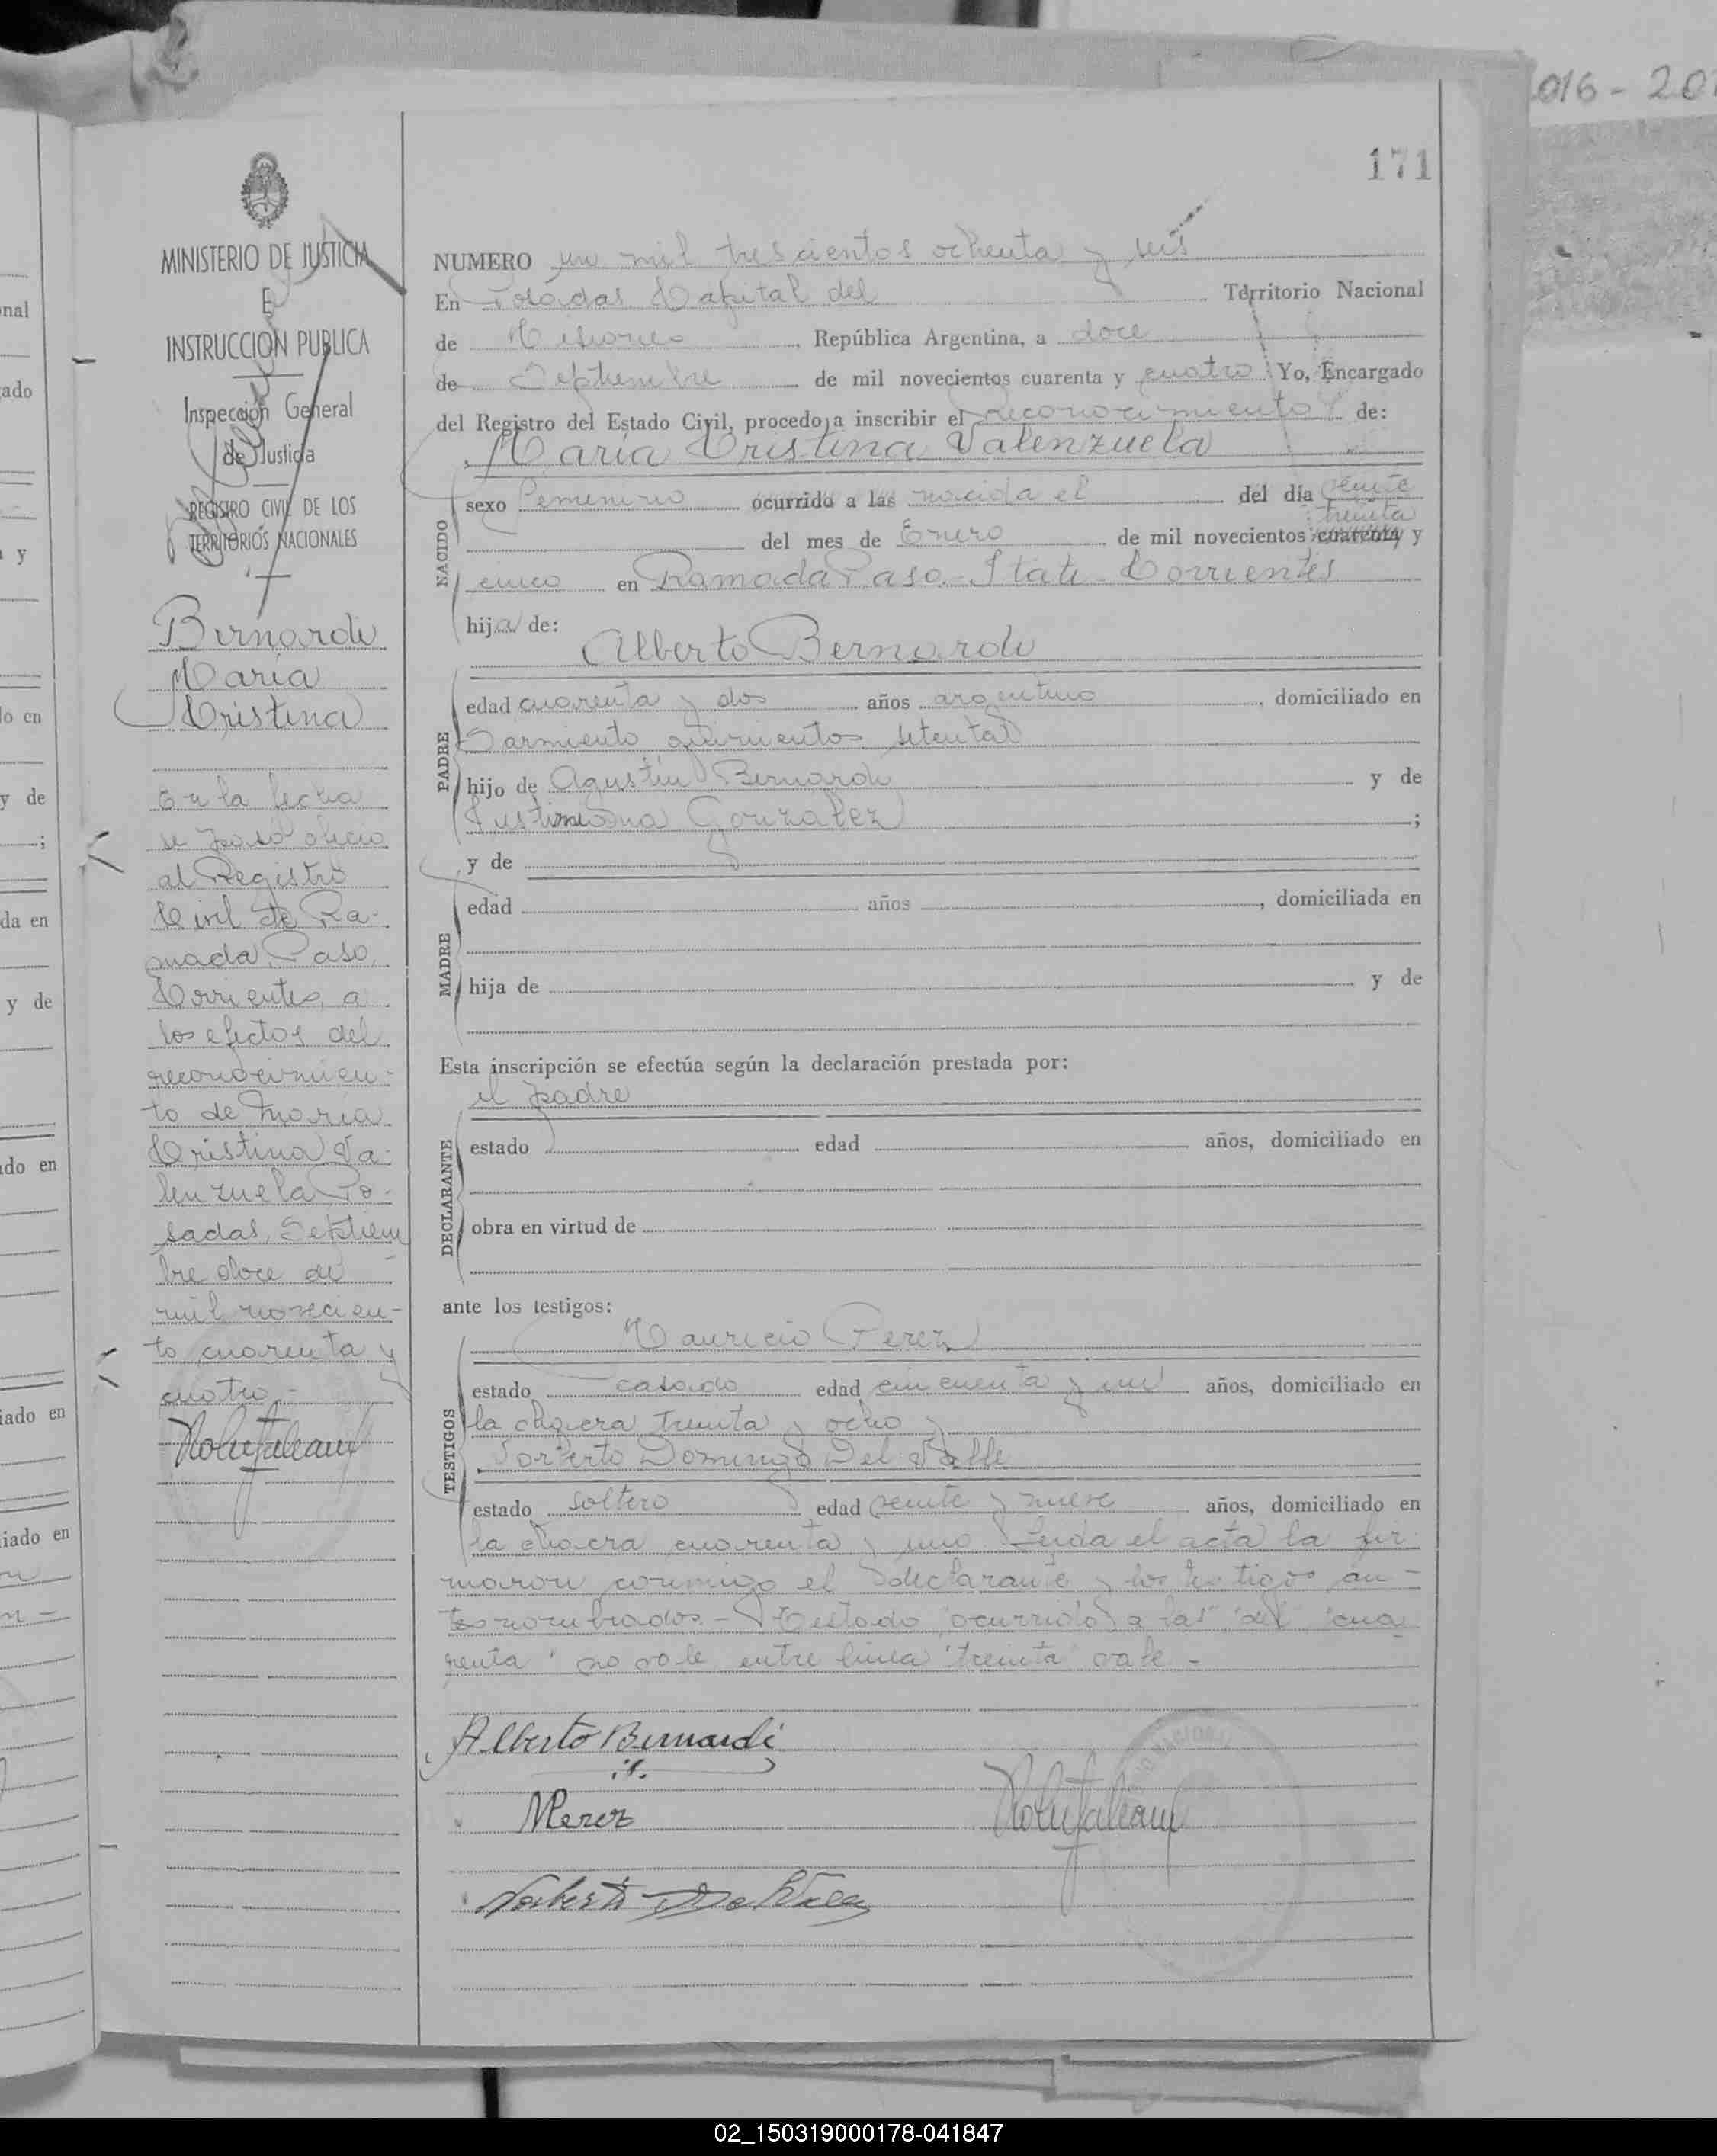 016 - 20
171
MINISTERIO DE JUSTICIA
E
INSTRUCCION PUBLICA
Inspección General
de Justicia
REGISTRO CIVIL DE LOS
TERRITORIOS NACIONALES
Bernardi
María
Cristina
En la fecha
se pasó oficio
al Registro
Civil de Ra-
mada Paso,
Corrientes, a
los efectos del
reconocimien-
to de María
Cristina Va-
lenzuela Po-
sadas, Septiem
bre doce de
mil novecien-
to cuarenta y
cuatro.-
NUMERO un mil trescientos ochenta y seis
En Posadas Capital del Territorio Nacional
de Misiones, República Argentina, a doce
de Septiembre de mil novecientos cuarenta y cuatro Yo, Encargado
del Registro del Estado Civil, procedo a inscribir el reconocimiento de:
María Cristina Valenzuela
NACIDO
sexo femenino ocurrido a las nacida el del día veinte
treinta
del mes de Enero de mil novecientos cuarenta y
cinco en Ramada Paso - Itatí - Corrientes
hija de:
Alberto Bernardi
PADRE
edad cuarenta y dos años argentino, domiciliado en
Sarmiento quinientos setenta
hijo de Agustín Bernardi y de
Justiniana Gonzalez;
y de
MADRE
edad años, domiciliada en
hija de y de
Esta inscripción se efectúa según la declaración prestada por:
el padre
DECLARANTE
estado edad años, domiciliado en
obra en virtud de
ante los testigos:
Mauricio Perez
TESTIGOS
estado casado edad cincuenta y un años, domiciliado en
la chacra treinta y ocho y
Norberto Domingo Del Valle
estado soltero edad veinte y nueve años, domiciliado en
la chacra cuarenta y uno Leida el acta la fir
maron conmigo el declarante y los testigos an-
tes nombrados.- Testado "ocurrido a las" "del" "cua
renta" no vale entre linea "treinta" vale -
Alberto Bernardi
MPerez
Norberto Del Valle
nal
ado
y
do en
y de
;
da en
y de
do en
iado en
iado en
02_150319000178-041847